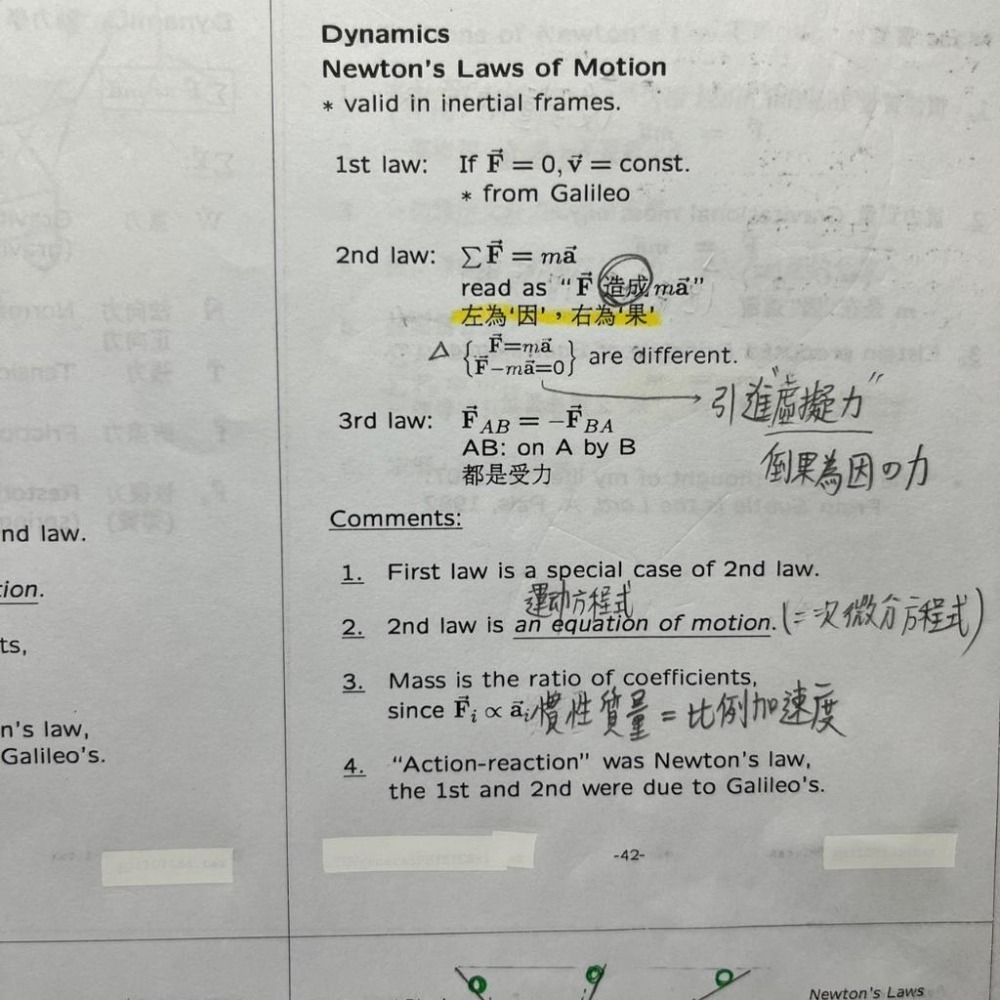 Dynamics
Newton's Laws of Motion
* valid in inertial frames.
1st law: If F⃗ = 0, v⃗ = const.
* from Galileo
2nd law: ∑F⃗ = ma⃗
read as “F⃗ 造成 ma⃗”
左為‘因’，右為‘果’
△ {F⃗=ma⃗
{F⃗−ma⃗=0} are different.
引進“虛擬力”
倒果為因の力
3rd law: F⃗AB = −F⃗BA
AB: on A by B
都是受力
Comments:
1. First law is a special case of 2nd law.
運动方程式
2. 2nd law is an equation of motion. (二次微分方程式)
3. Mass is the ratio of coefficients,
since F⃗i ∝ a⃗i 慣性質量 = 比例加速度
4. “Action-reaction” was Newton's law,
the 1st and 2nd were due to Galileo's.
-42-
nd law.
tion.
ts,
n's law,
Galileo's.
Newton's Laws